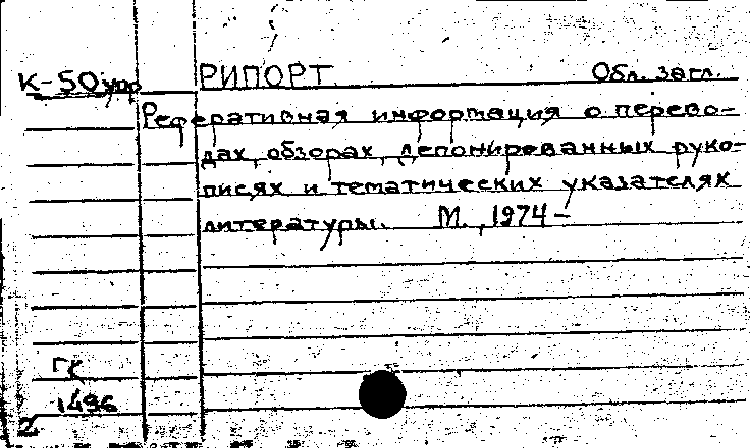 К-50 РИПОРТ Обл. загл.
Реферативная информация о перево-
дах, обзорах, депонированных руко-
писях и тематических указателях
литературы. М., 1974-
ГК
1496
2